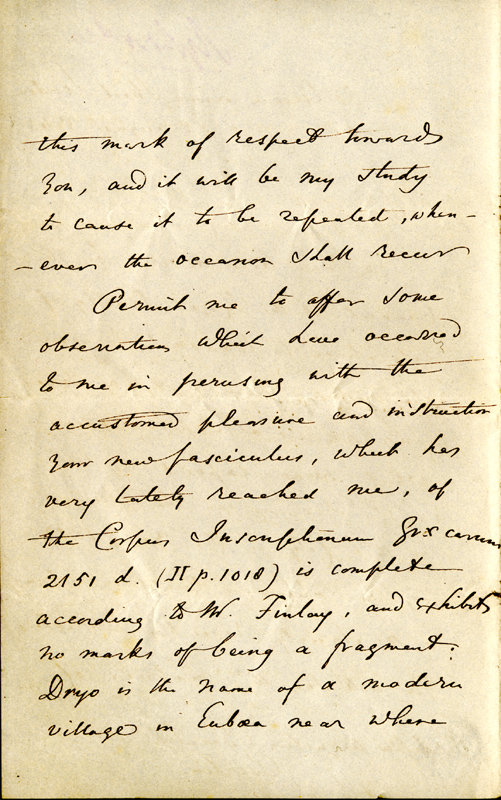 this mark of respect towards
you, and it will be my study
to cause it to be repeated, when-
-ever the occasion shall recur
Permit me to offer some
observations which have occurred
to me in perusing with the
accustomed pleasure and instruction
your new fasciculus, which has
very lately reached me, of
the Corpus Inscriptionum Græcarum
2151 d. (II p. 1018) is complete
according to Mr. Finlay, and exhibits
no marks of being a fragment.
Dryo is the name of a modern
village in Eubœa near where